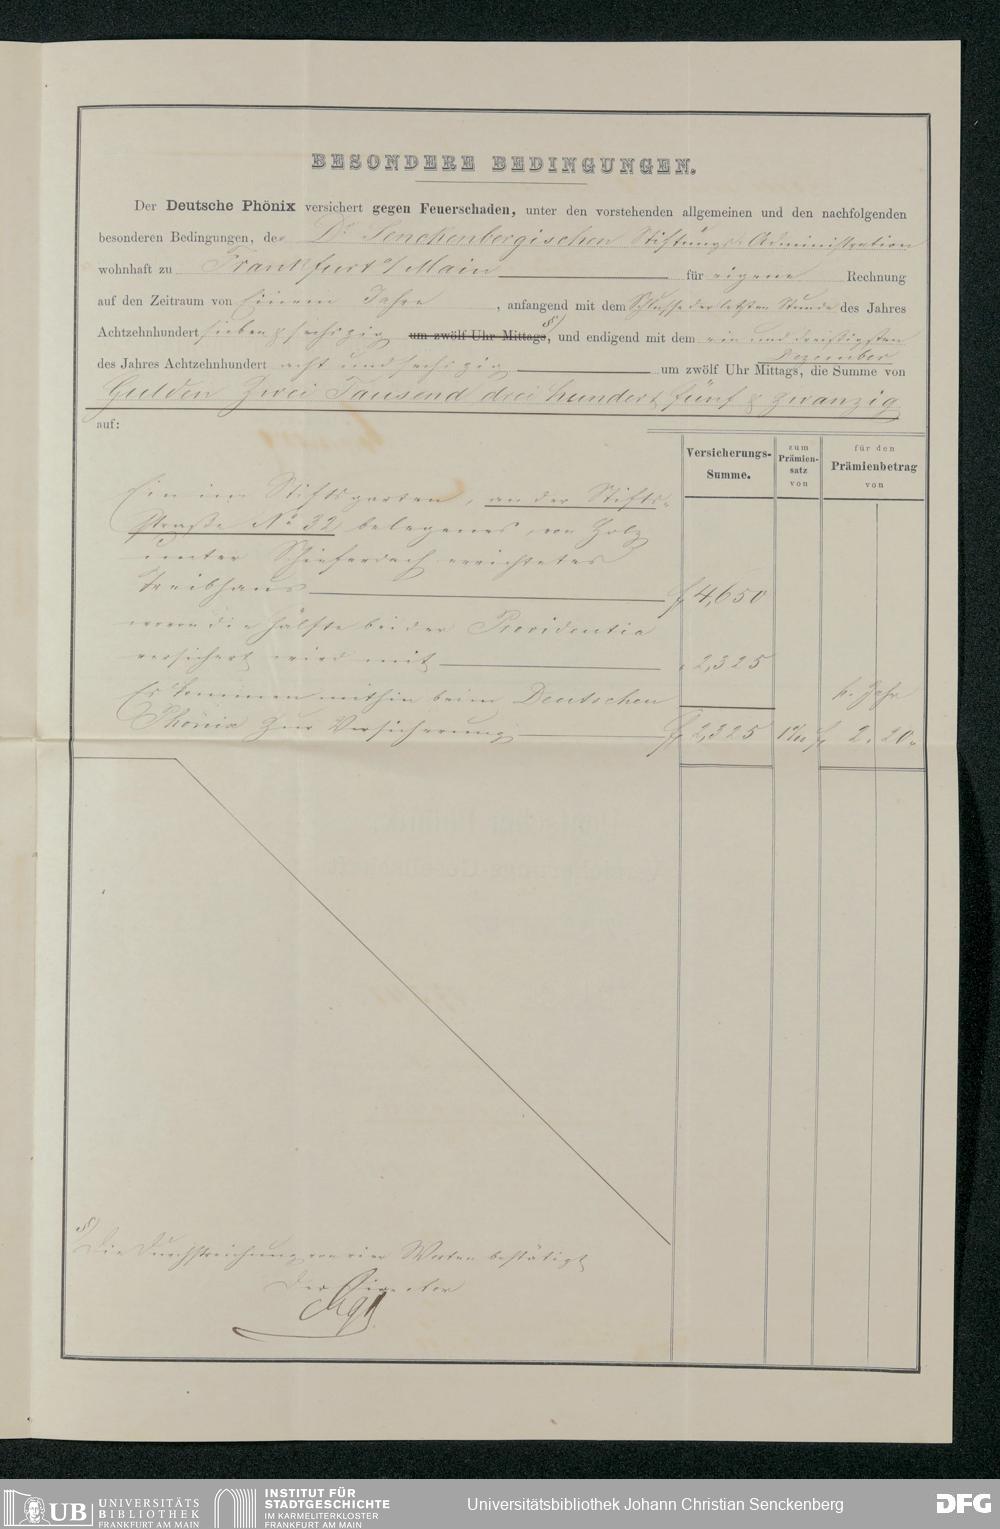 BESONDERE BEDINGUNGEN.
Der Deutsche Phönix versichert gegen Feuerschaden, unter den vorstehenden allgemeinen und den nachfolgenden
besonderen Bedingungen, der Dr. Senckenbergischen Stiftungs-Administration
wohnhaft zu Frankfurt a/Main für eigene Rechnung
auf den Zeitraum von Einem Jahre, anfangend mit dem Schlusse der letzten Stunde des Jahres
Achtzehnhundert sieben & sechszig um zwölf Uhr Mittags, §) und endigend mit dem ein und dreißigsten
Dezember
des Jahres Achtzehnhundert acht und sechszig um zwölf Uhr Mittags, die Summe von
Gulden Zwei Tausend drei hundert fünf & zwanzig
auf:
Versicherungs-Summe.
zum Prämien-satz von
für den Prämienbetrag von
Ein im Stiftsgarten, an der Stifts-
straße No 32 belegenes, von Holz
unter Schieferdach errichtetes
Treibhaus f 4,650
wovon die Hälfte bei der Providentia
versichert wird mit " 2,325
Es kommen mithin beim Deutschen p. Jahr
Phönix zur Versicherung f 2,325 1‰ f 2. 20"
§) Die Durchstreichung von vier Worten bestätigt
Der Director
UB UNIVERSITÄTS
BIBLIOTHEK
FRANKFURT AM MAIN
INSTITUT FÜR
STADTGESCHICHTE
IM KARMELITERKLOSTER
FRANKFURT AM MAIN
Universitätsbibliothek Johann Christian Senckenberg
DFG